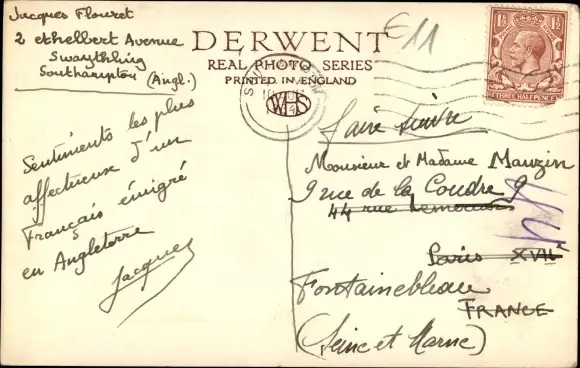 Jacques Flouret
2 ethelbert Avenue
Swaythling
Southampton (Angl.)
DERWENT
REAL PHOTO SERIES
PRINTED IN ENGLAND
WHS
£11
1½ 1½
THREE HALFPENCE
Sentiments les plus
affectueux d'un
Français émigré
en Angleterre
Jacques
faire suivre
Monsieur et Madame Mauzin
9 rue de la Coudre 9
44 rue Lemercier
Paris XVII
Fontainebleau
FRANCE
(Seine et Marne)